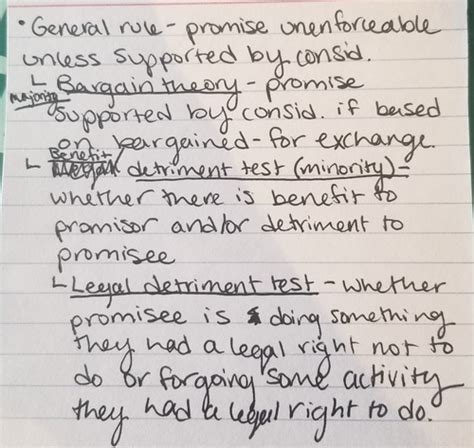 • General rule - promise unenforceable
unless supported by consid.
↳ Bargain theory - promise
majority
supported by consid. if based
on bargained-for exchange.
Benefit/
↳ detriment test (minority) -
whether there is benefit to
promisor and/or detriment to
promisee
↳ Legal detriment test - whether
promisee is doing something
they had a legal right not to
do or forgoing some activity
they had a legal right to do.